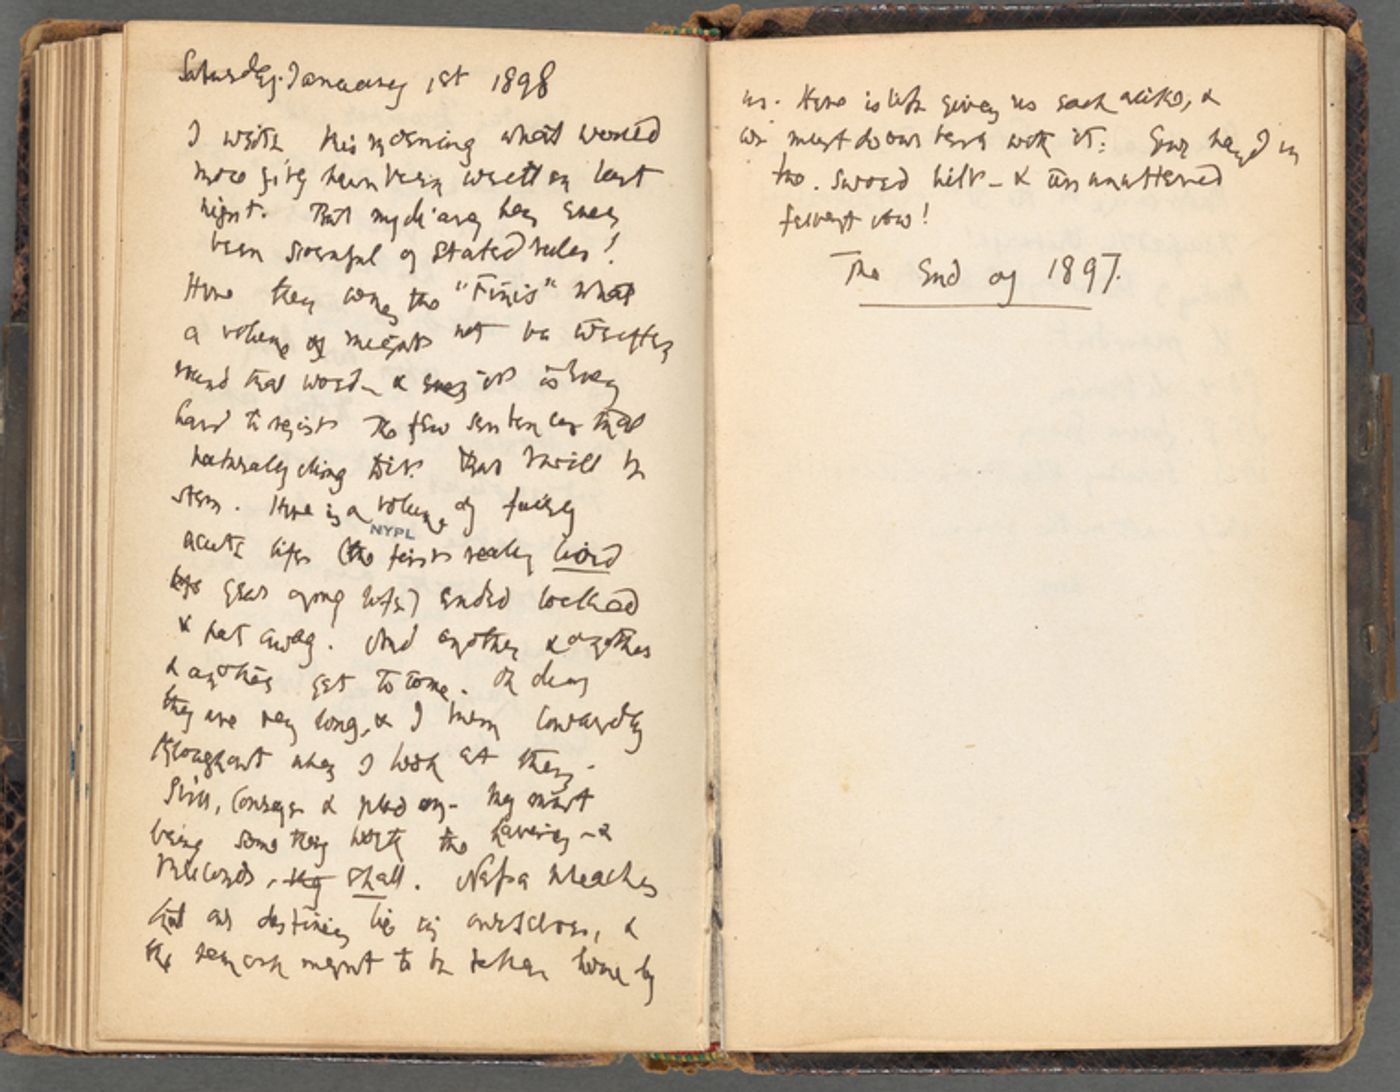 Saturday. January 1st 1898
I write this morning what would
more fitly have been written last
night. But my diary has ever
been scornful of stated rules!
Here then comes the "Finis" what
a volume might not be written
round that word - & it is very
hard to resist the few sentences that
naturally cling to it. But I will be
stern. Here is a volume of fairly
NYPL
acute life (the first really lived
year of my life) ended locked
& put away. And another & another
& another yet to come. Oh dear
they are very long, & I seem cowardly
throughout when I look at them.
Still, courage & plod on - They must
bring something worth the having - &
they shall. Nessa preaches
that our destinies lie in ourselves, &
the sermon ought to be taken home by
us. Here is life given us each alike, &
we must do our best with it: your hand in
the sword hilt - & an unuttered
fervent vow!
The End of 1897.